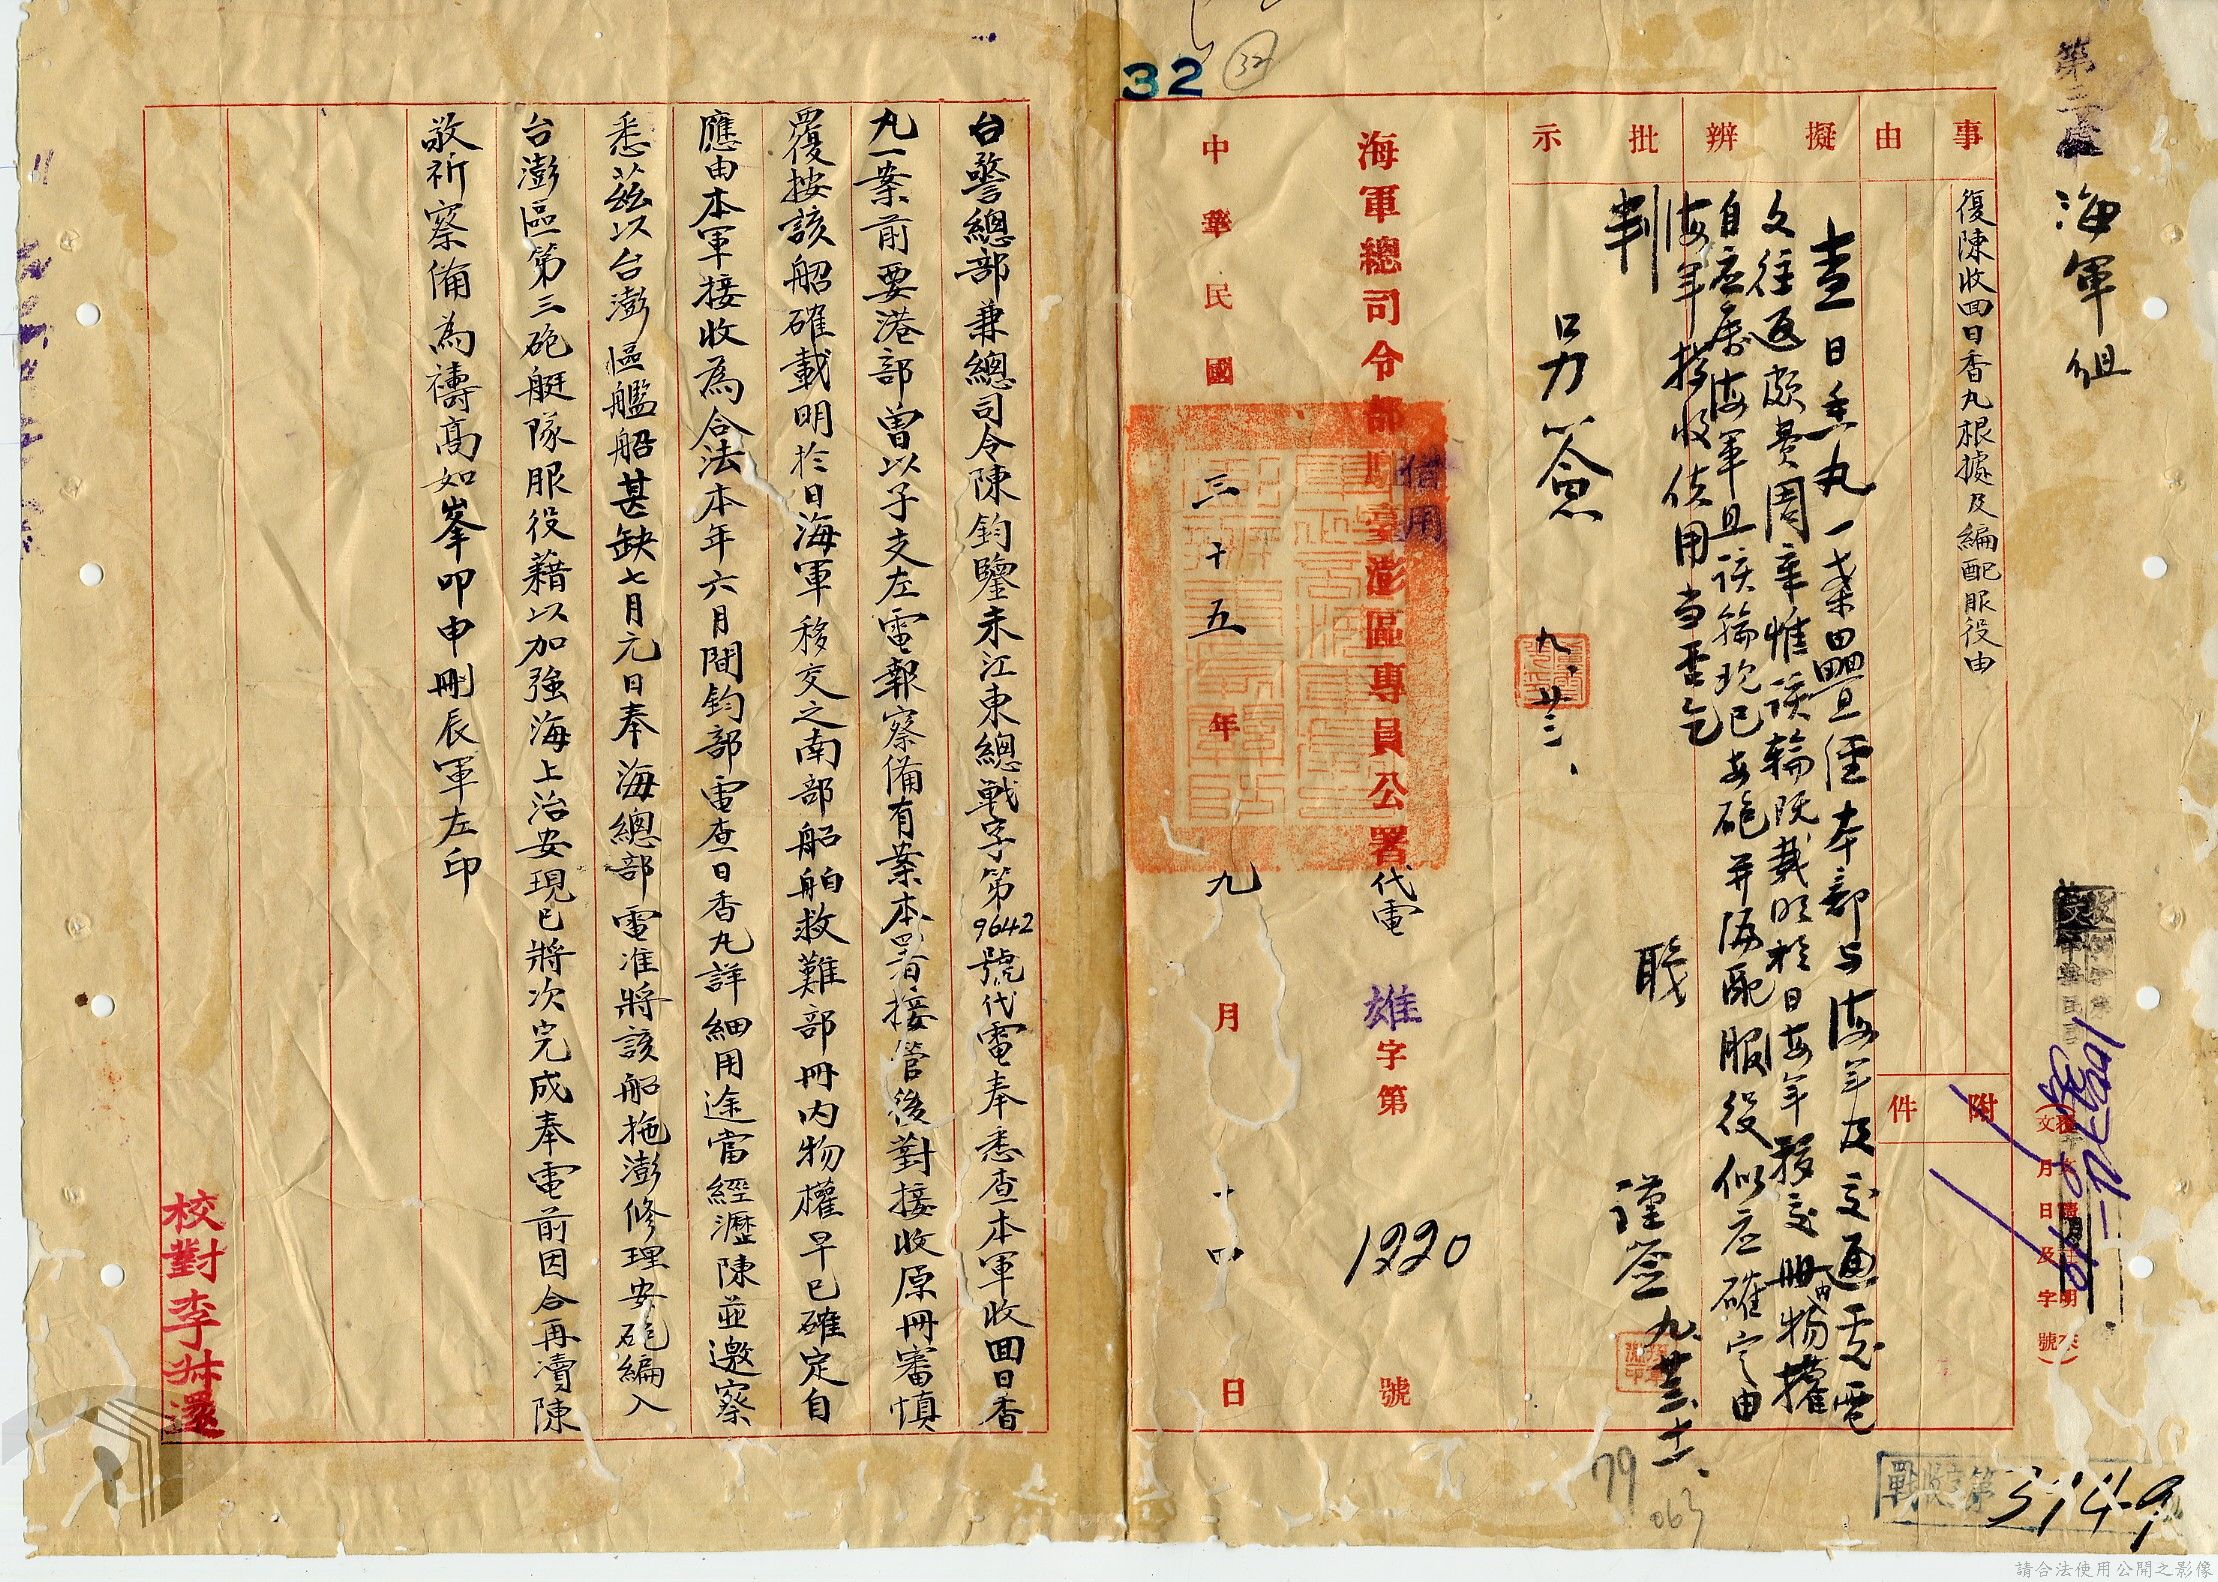 32
32
海軍組
事由
擬辦
批示
附件
復陳收回日香丸根據及編配服役由
查日香丸一案曾經本部與海軍及交通處電
文往返頗費周章惟該輪既載明於日海軍移交冊內物權
自应屬海軍且該輪现已安砲并编配服役似应確定由
海軍接收使用当否乞
判
職
謹簽 九、廿三、十一、
另簽 九、廿三、
海軍總司令部駐臺澎區專員公署代電
借用
雄字第1220號
中華民國三十五年九月十四日
台警總部兼總司令陳鈞鑒未江東總戰字第9642號代電奉悉查本軍收回日香
丸一案前要港部曾以子支左電報察備有案本署接管後對接收原冊審慎
覆按該船確載明於日海軍移交之南部船舶救難部冊內物權早已確定自
應由本軍接收為合法本年六月間鈞部電查日香丸詳細用途當經瀝陳並邀察
悉茲以台澎區艦船甚缺七月元日奉海總部電准將該船拖澎修理安砲編入
台澎區第三砲艇隊服役藉以加強海上治安現已將次完成奉電前因合再瀆陳
敬祈察備為禱高如峯叩申刪辰軍左印
校對李
79
063
3149
請合法使用公開之影像